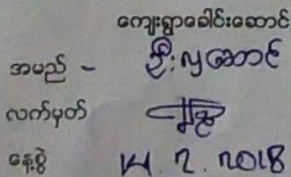 ကျေးရွာခေါင်းဆောင်
အမည် - ဦးလှအောင်
လက်မှတ်
နေ့စွဲ 14.2.2018